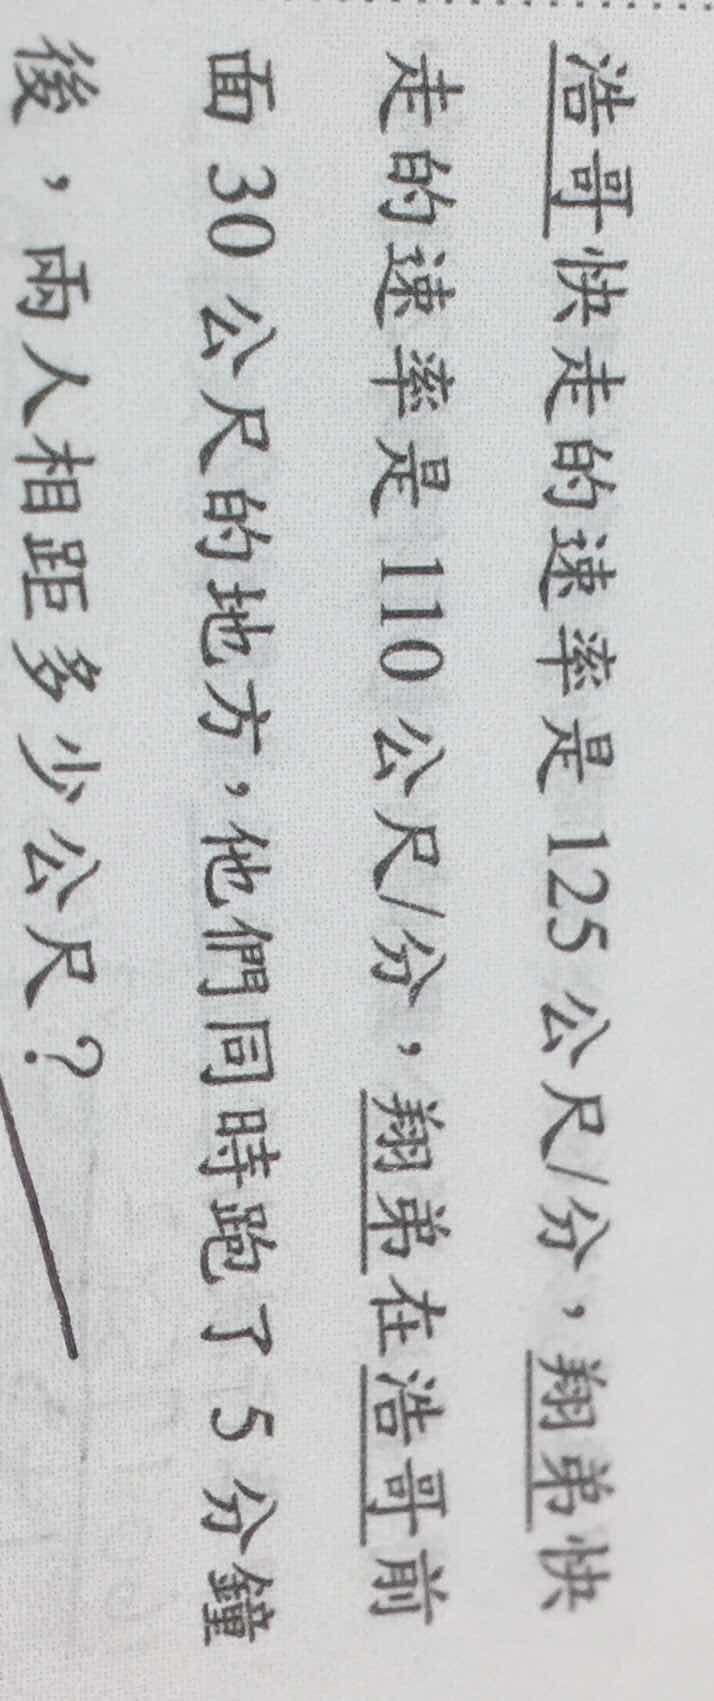 浩哥快走的速率是125公尺/分，翔弟快
走的速率是110公尺/分，翔弟在浩哥前
面30公尺的地方，他們同時跑了5分鐘
後，兩人相距多少公尺？